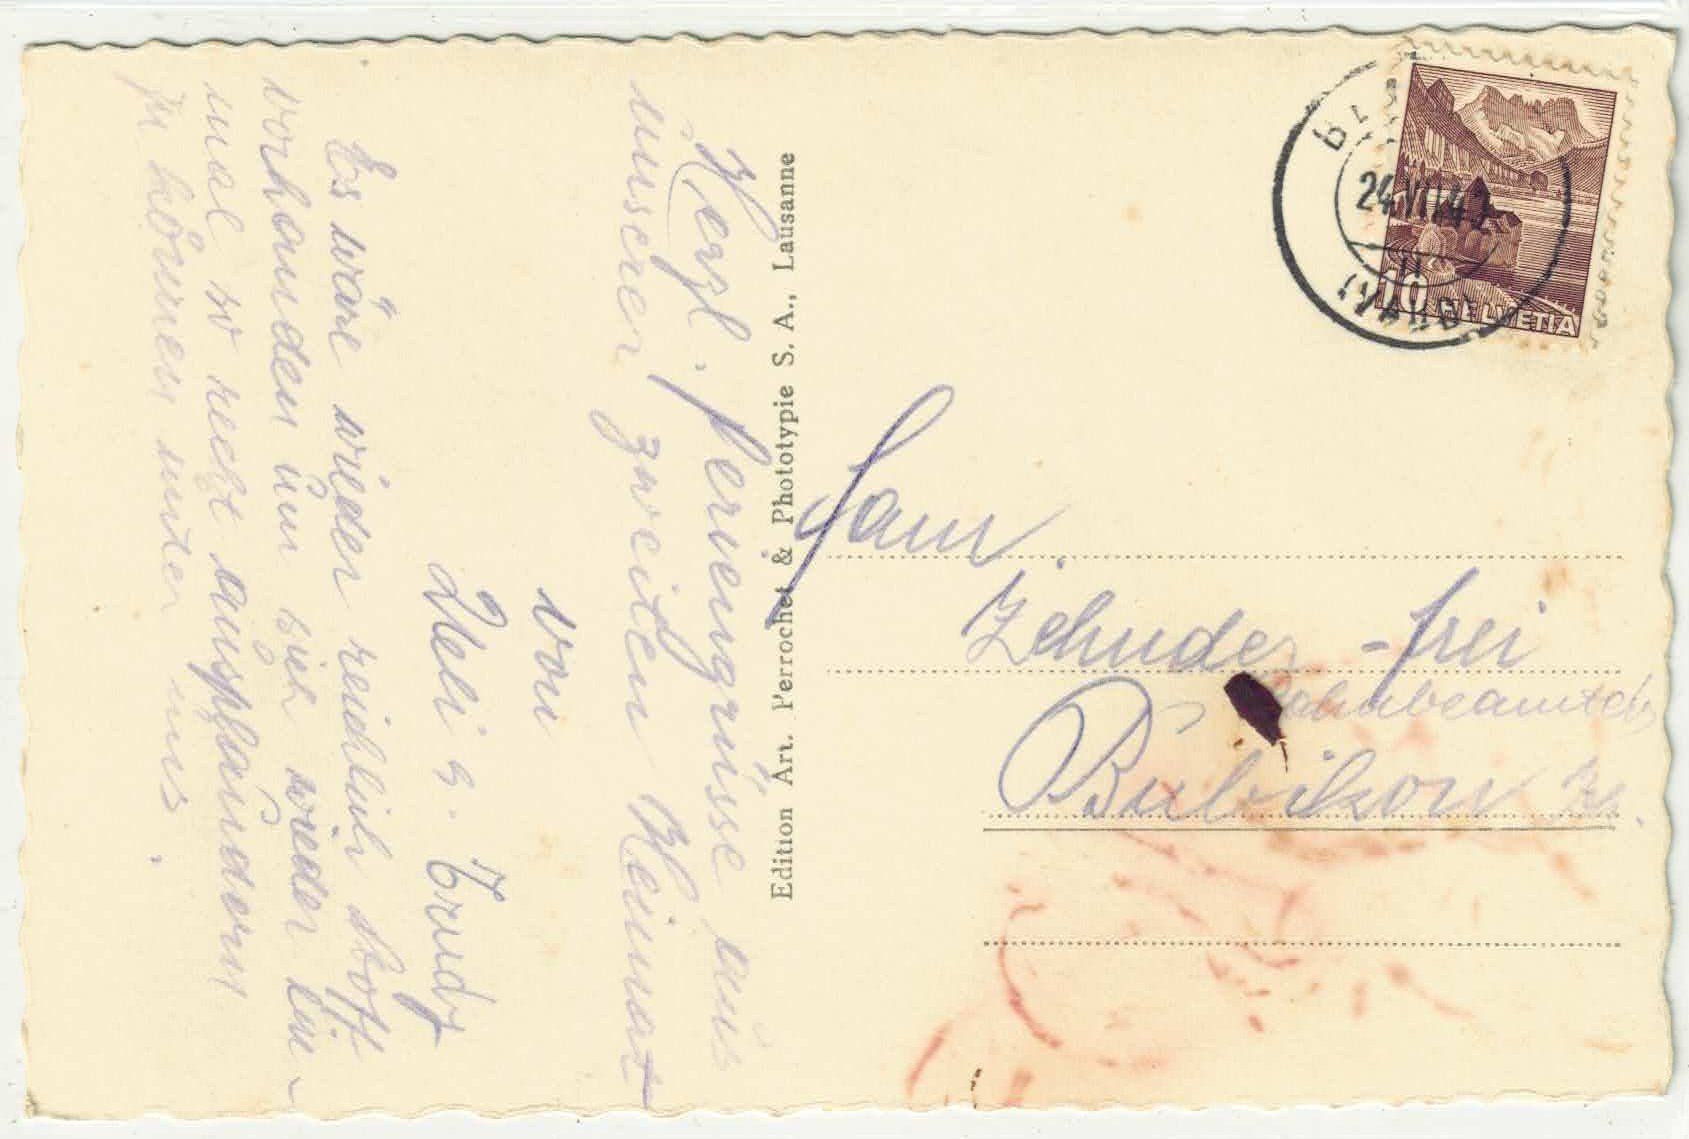 Herzl. ferwengrüsse aus
unserer zweiten Heimat
von
Ueli u. Trudy
Es wäre wieder reichlich stoff
vorhanden um sich wieder ein-
mal so recht ausplaudern
zu können unter uns.
Edition Art. Perrochet & Phototypie S. A., Lausanne
24.VII.42
(VAUD)
10 HELVETIA
Fam.
Zehnder-frei
Bahnbeamter
Bubikon Zh.